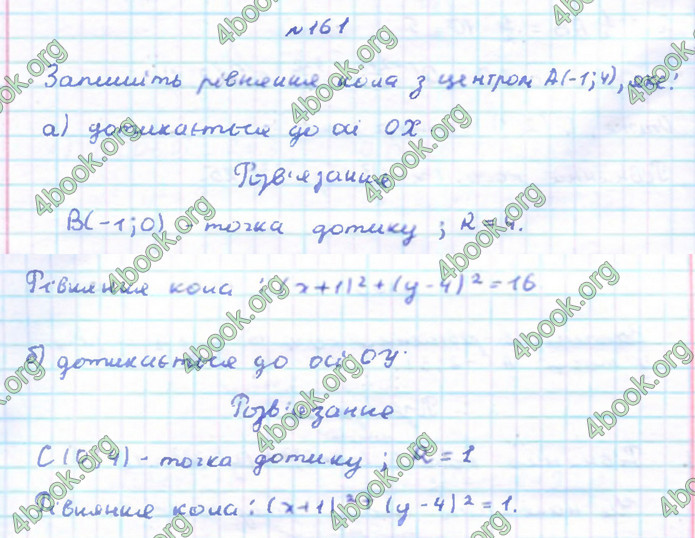 №161
Запишіть рівняння кола з центром А(-1;4), яке:
а) дотикається до осі ОХ
Розв'язання
В(-1;0) - точка дотику; R = 4.
Рівняння кола: (x+1)²+(y-4)²=16
б) дотикається до осі ОУ.
Розв'язання
С(0;4) - точка дотику; R = 1
Рівняння кола: (x+1)²+(y-4)²=1.
4book.org